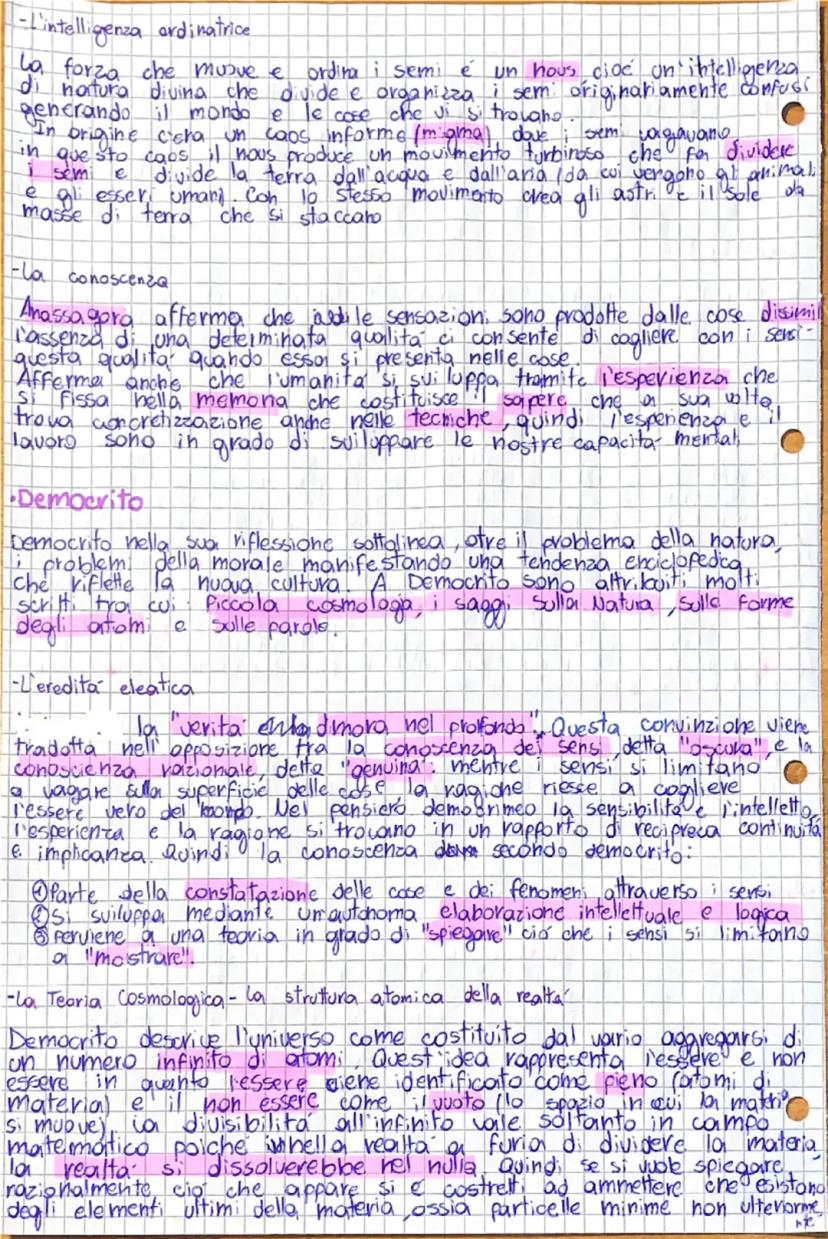 -L'intelligenza ordinatrice
La forza che muove e ordina i semi é un nous, cioé un'intelligenza
di natura divina che divide e organizza i semi originariamente confusi
generando il mondo e le cose che vi si trovano.
In origine c'era un caos informe (migma) dove i semi vagavano
in questo caos il nous produce un movimento turbinoso che fa dividere
i semi e divide la terra dall'acqua e dall'aria (da cui vengono gli animali
e gli esseri umani. Con lo stesso movimento crea gli astri e il sole da
masse di terra che si staccano
-La conoscenza
Anassagora afferma che le sensazioni sono prodotte dalle cose dissimili
l'assenza di una determinata qualità ci consente di cogliere con i sensi-
questa qualità quando essa si presenta nelle cose.
Afferma anche che l'umanità si sviluppa tramite l'esperienza che
si fissa nella memoria che costituisce il sapere che a sua volta
trova concretizzazione anche nelle tecniche, quindi l'esperienza e il
lavoro sono in grado di sviluppare le nostre capacità mentali
•Democrito
Democrito nella sua riflessione sottolinea, otre il problema della natura,
i problemi della morale manifestando una tendenza enciclopedica
che riflette la nuova cultura. A Democrito sono attribuiti molti
scritti tra cui: Piccola cosmologia, i saggi sulla Natura, sulle forme
degli atomi e sulle parole.
-L'eredità eleatica
la "verità dimora nel profondo". Questa convinzione viene
tradotta nell'opposizione tra la conoscenza dei sensi, detta "oscura", e la
conoscienza razionale, detta "genuina": mentre i sensi si limitano
a vagare sulla superficie delle cose la ragione riesce a cogliere
l'essere vero del mondo. Nel pensiero democrimeo la sensibilità e l'intelletto,
l'esperienza e la ragione si trovano in un rapporto di recipreca continuità
e implicanza. Quindi la conoscenza secondo democrito:
①Parte della constatazione delle cose e dei fenomeni attraverso i sensi
②Si sviluppa mediante un'autonoma elaborazione intellettuale e logica
③perviene a una teoria in grado di "spiegare" ciò che i sensi si limitano
a "mostrare".
-La Teoria Cosmologica - La struttura atomica della realtà
Democrito descrive l'universo come costituito dal vario aggregarsi di
un numero infinito di atomi. Quest'idea rappresenta l'essere e non
essere in quanto l'essere viene identificato come pieno (atomi di
materia) e il non essere come il vuoto (lo spazio in cui la materia
si muove). La divisibilità all'infinito vale soltanto in campo
matematico poiché nella realtà a furia di dividere la materia,
la realtà si dissolverebbe nel nulla. Quindi se si vuole spiegare
razionalmente ciò che appare si è costretti ad ammettere che esistono
degli elementi ultimi della materia, ossia particelle minime non ulteriorme
nte